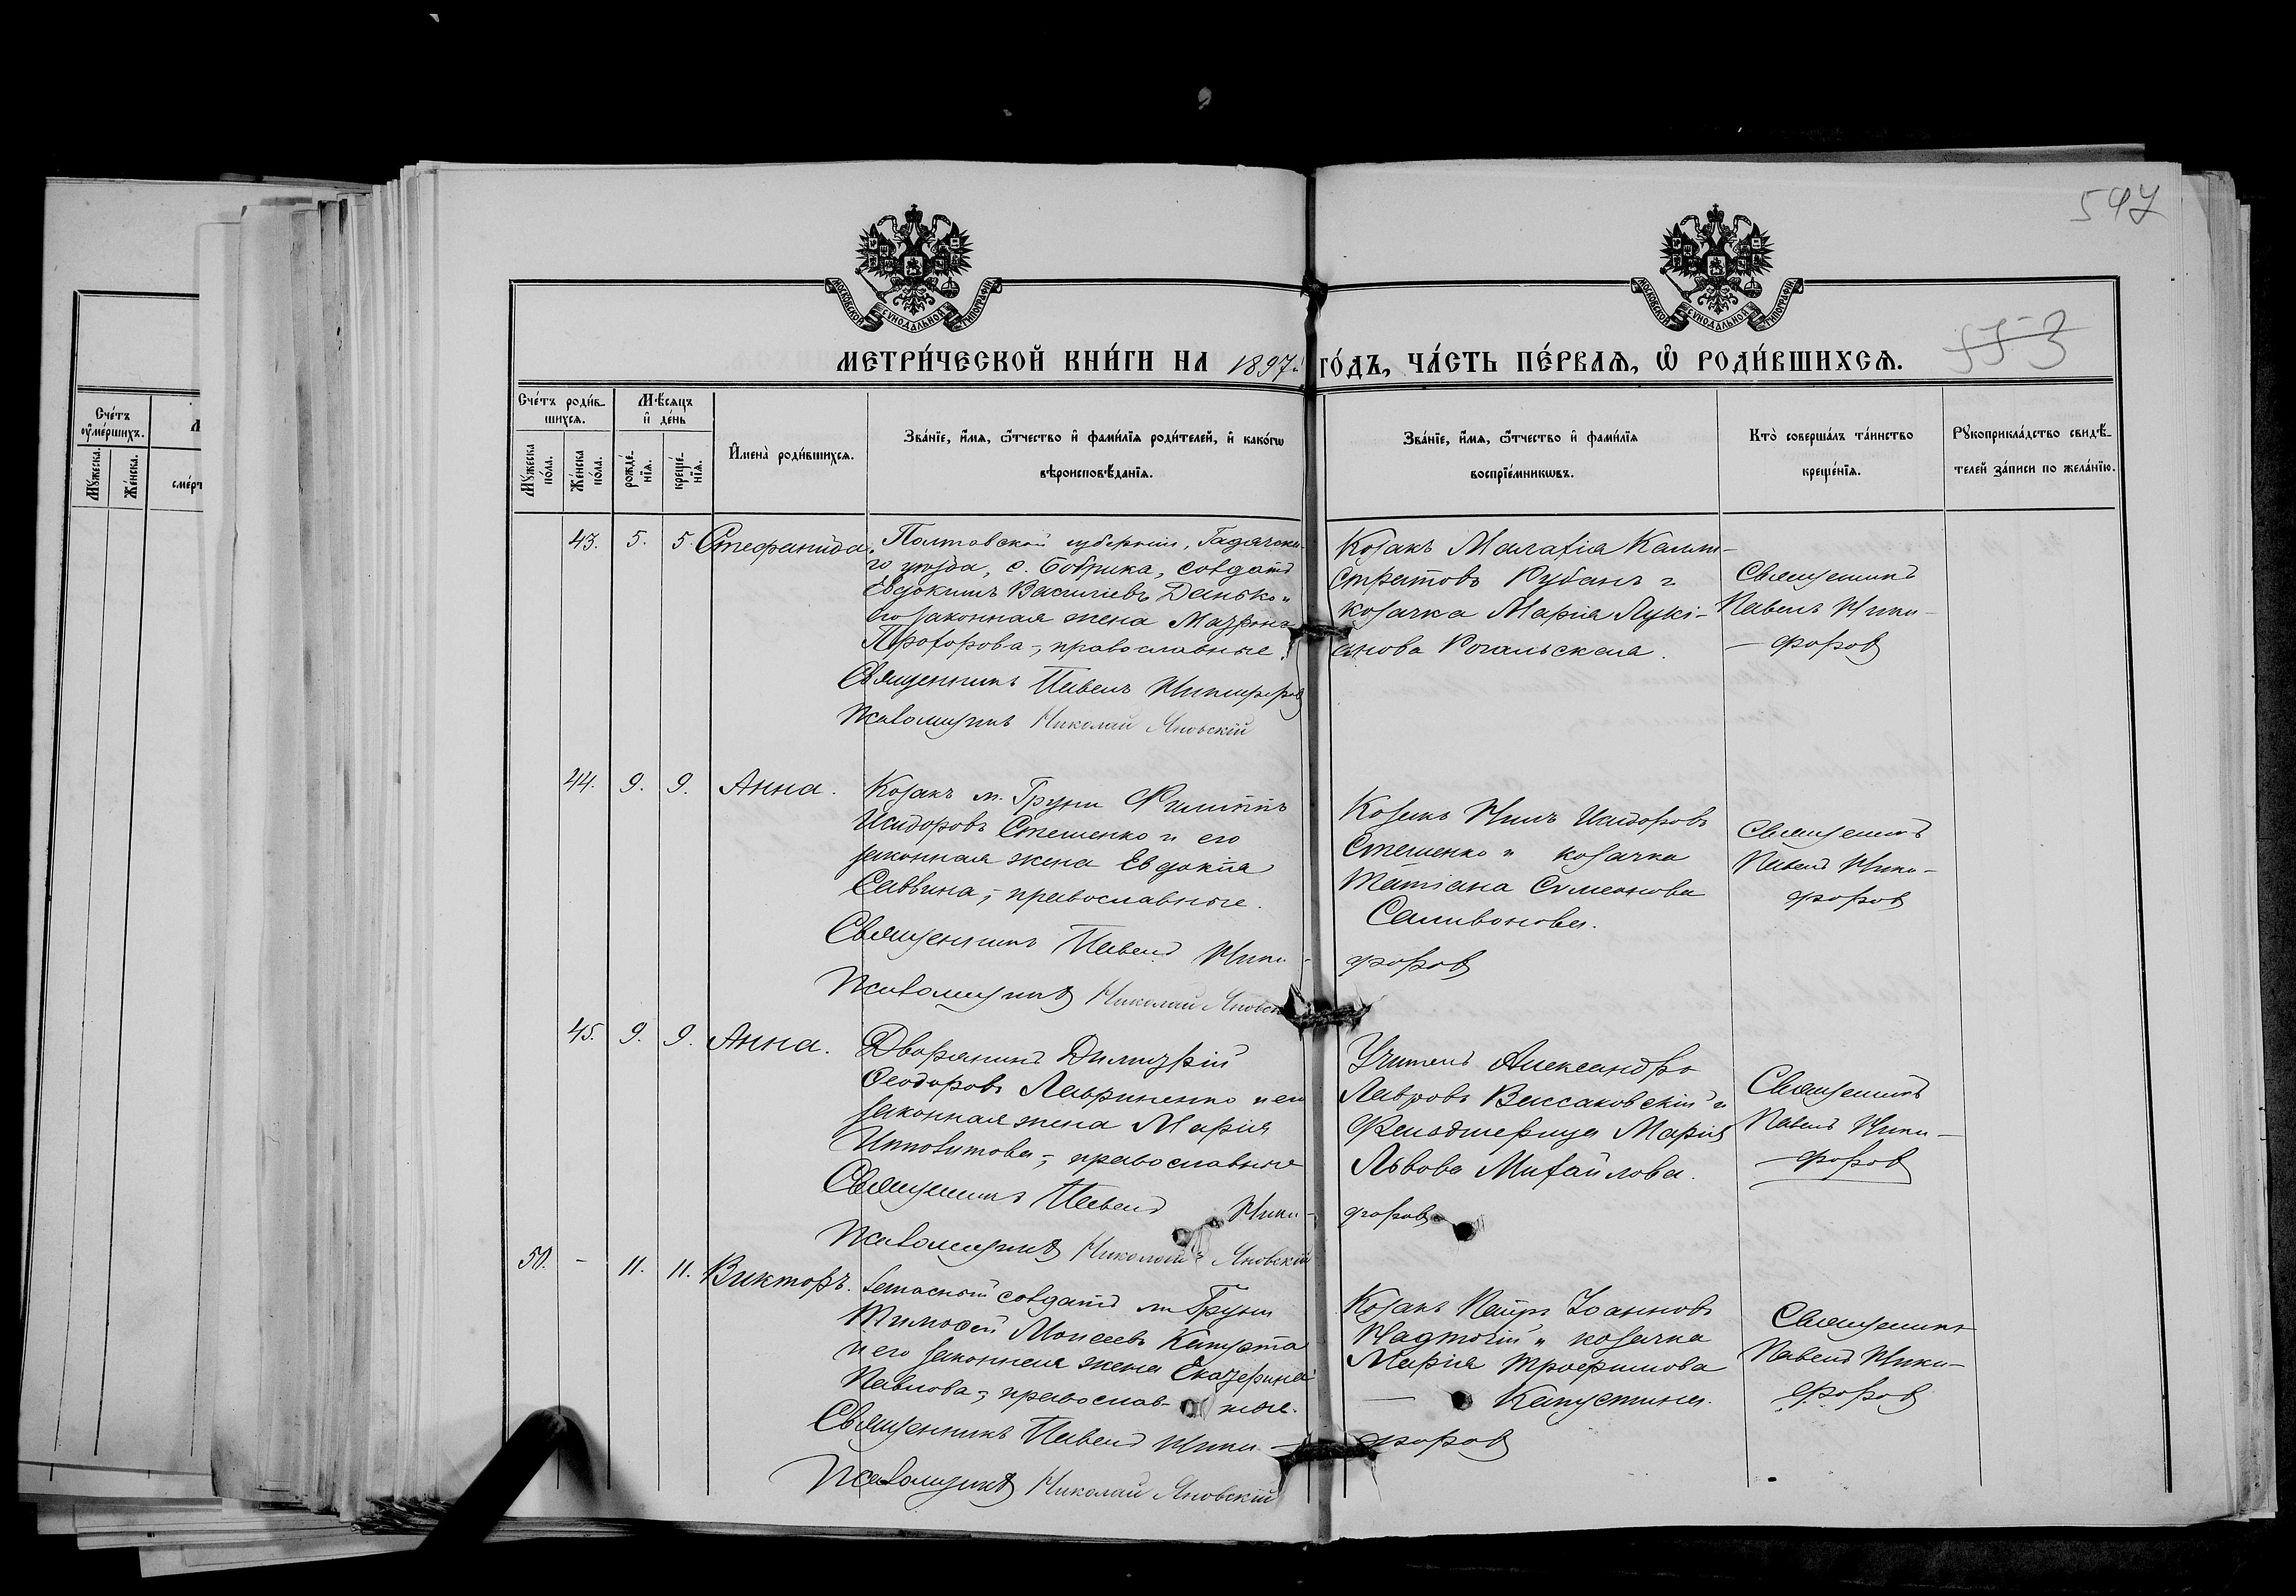 547
МОСКОВСКОЙ СУНОДАЛЬНОЙ ТИПОГРАФІИ
МОСКОВСКОЙ СУНОДАЛЬНОЙ ТИПОГРАФІИ
МЕТРИ́ЧЕСКОЙ КНИ́ГИ НА 1897й ГО́ДЪ, ЧА́СТЬ ПЕ́РВАѦ, Ѡ҆ РОДИ́ВШИХСѦ.
553
Сче́тъ ᲂу҆ме́ршихъ.
Мꙋ́жеска.
Же́нска.
Сче́тъ роди́вшихсѧ.
Мꙋ́жеска по́ла.
Же́нска по́ла.
Мѣ́сяцъ и҆ де́нь
рожде́нїѧ.
креще́нїѧ.
И҆мена̀ роди́вшихсѧ.
Зва́нїе, и҆́мѧ, ѻ҆́тчество и҆ фами́лїѧ роди́телей, и҆ како́гѡ
вѣроисповѣ́данїѧ.
Зва́нїе, и҆́мѧ, ѻ҆́тчество и҆ фами́лїѧ
воспрїе́мникѡвъ.
Кто̀ соверша́лъ та́инство
креще́нїѧ.
Рꙋкоприкла́дство свидѣ́-
телей за́писи по жела́нїю.
43. 5. 5. Стефанида.
Полтавской губерніи, Гадячска-
го уѣзда, с. Бобрика, солдатъ
Евдокимъ Василіевъ Данько и
его законная жена Мавра
Прохорова, православные.
Священникъ Павелъ Никифоровъ
Псаломщикъ Николай Яновскій
Козакъ Малахія Калли-
стратовъ Рубанъ и
козачка Марія Лукі-
анова Рогальская.
Священникъ
Павелъ Ники-
форовъ
44. 9. 9. Анна.
Козакъ м. Груни Филиппъ
Исидоровъ Стешенко и его
законная жена Евдокія
Саввина, православные.
Священникъ Павелъ Ники-форовъ
Псаломщикъ Николай Яновск
Козакъ Нилъ Исидоровъ
Стешенко и козачка
Татіана Симеонова
Селивонова.
Священникъ
Павелъ Ники-
форовъ
45. 9. 9. Анна.
Дворянинъ Димитрій
Ѳеодоровъ Лавриненко и его
законная жена Марія
Ипполитова, православные
Священникъ Павелъ Ники-форовъ
Псаломщикъ Николай Яновскій
Учитель Александръ
Лавровъ Вассаковскій и
Фельдшерица Марія
Львова Михайлова.
Священникъ
Павелъ Ники-
форовъ
50. - 11. 11. Викторъ.
Запасной солдатъ м. Груни
Тимоѳей Моисеевъ Капуста
и его законная жена Екатерина
Павлова, православ-ные.
Священникъ Павелъ Ники-форовъ
Псаломщикъ Николай Яновскій
Козакъ Петръ Іоанновъ
Надточій и козачка
Марія Трофимова
Капустина.
Священникъ
Павелъ Ники-
форовъ